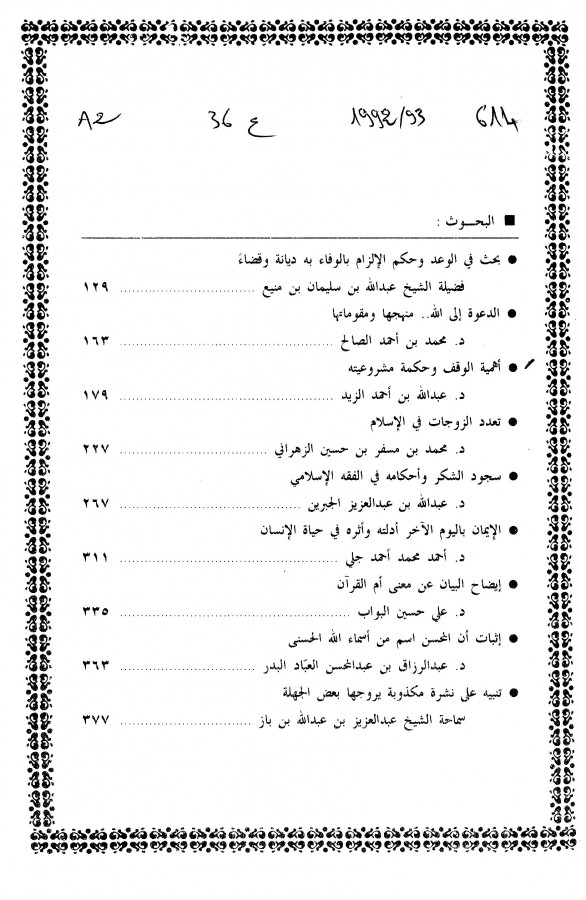 A2 36 ع 1992/93 614
■ البحـــوث :
● بحث في الوعد وحكم الإلزام بالوفاء به ديانة وقضاءً
فضيلة الشيخ عبدالله بن سليمان بن منيع ........................ ١٢٩
● الدعوة إلى الله.. منهجها ومقوماتها
د. محمد بن أحمد الصالح ........................ ١٦٣
● أهمية الوقف وحكمة مشروعيته
د. عبدالله بن أحمد الزيد ........................ ١٧٩
● تعدد الزوجات في الإسلام
د. محمد بن مسفر بن حسين الزهراني ........................ ٢٢٧
● سجود الشكر وأحكامه في الفقه الإسلامي
د. عبدالله بن عبدالعزيز الجبرين ........................ ٢٦٧
● الإيمان باليوم الآخر أدلته وأثره في حياة الإنسان
د. أحمد محمد أحمد جلي ........................ ٣١١
● إيضاح البيان عن معنى أم القرآن
د. علي حسين البواب ........................ ٣٣٥
● إثبات أن المحسن اسم من أسماء الله الحسنى
د. عبدالرزاق بن عبدالمحسن العبّاد البدر ........................ ٣٦٣
● تنبيه على نشرة مكذوبة يروجها بعض الجهلة
سماحة الشيخ عبدالعزيز بن عبدالله بن باز ........................ ٣٧٧